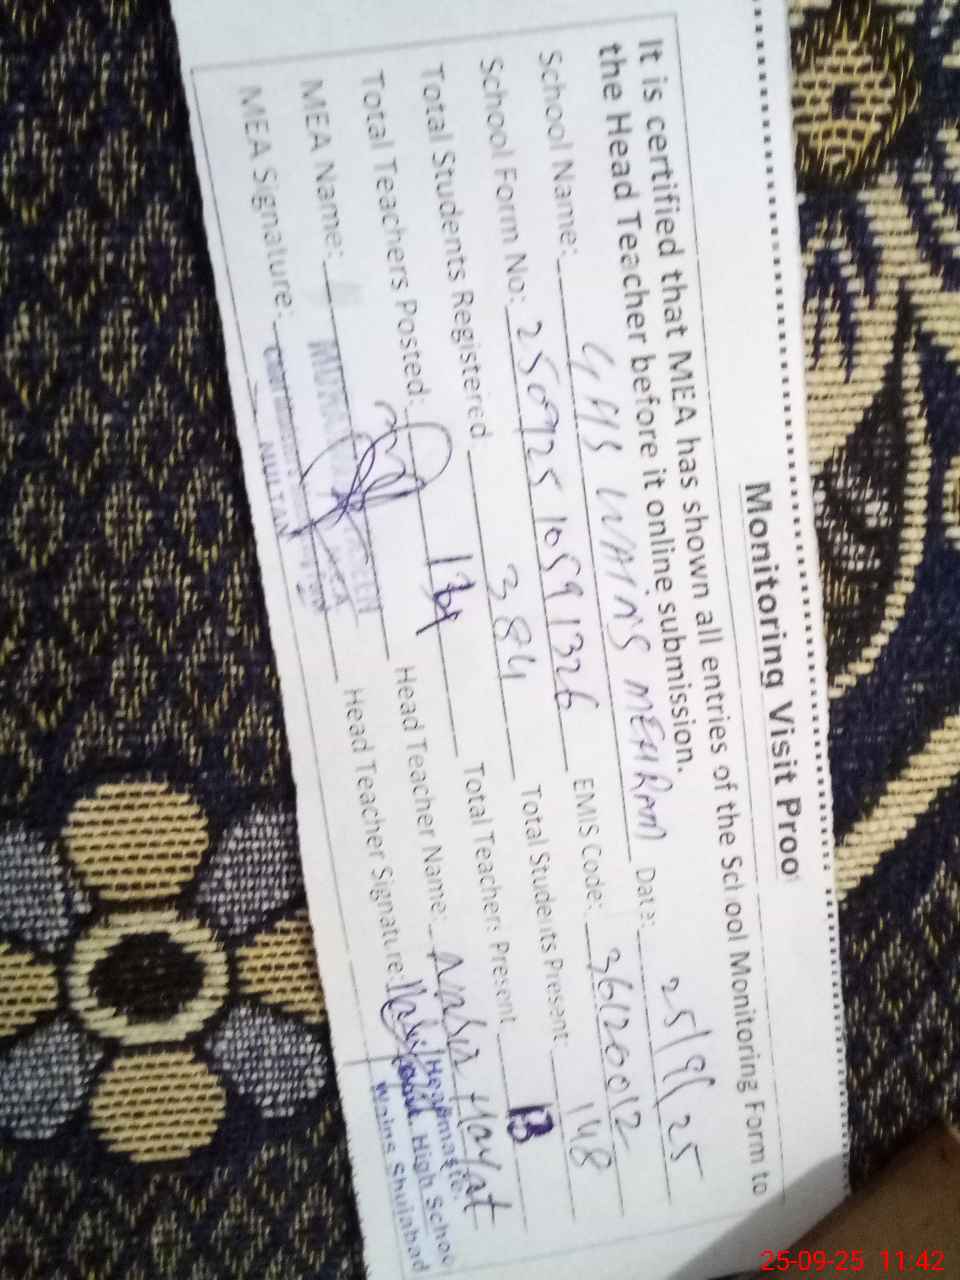 Monitoring Visit Proo
It is certified that MEA has shown all entries of the School Monitoring Form to
the Head Teacher before it online submission.
School Name: GHS WAINS MEHRAM Date: 25/9/25
School Form No: 25092510591326 EMIS Code: 36120012
Total Students Registered 384 Total Students Present 148
Total Teachers Posted: 14 Total Teachers Present 13
MEA Name: Head Teacher Name: Nasir Hayat
MEA Signature: Head Teacher Signature:
MULTAN
High School
Wains Shujabad
25-09-25 11:42